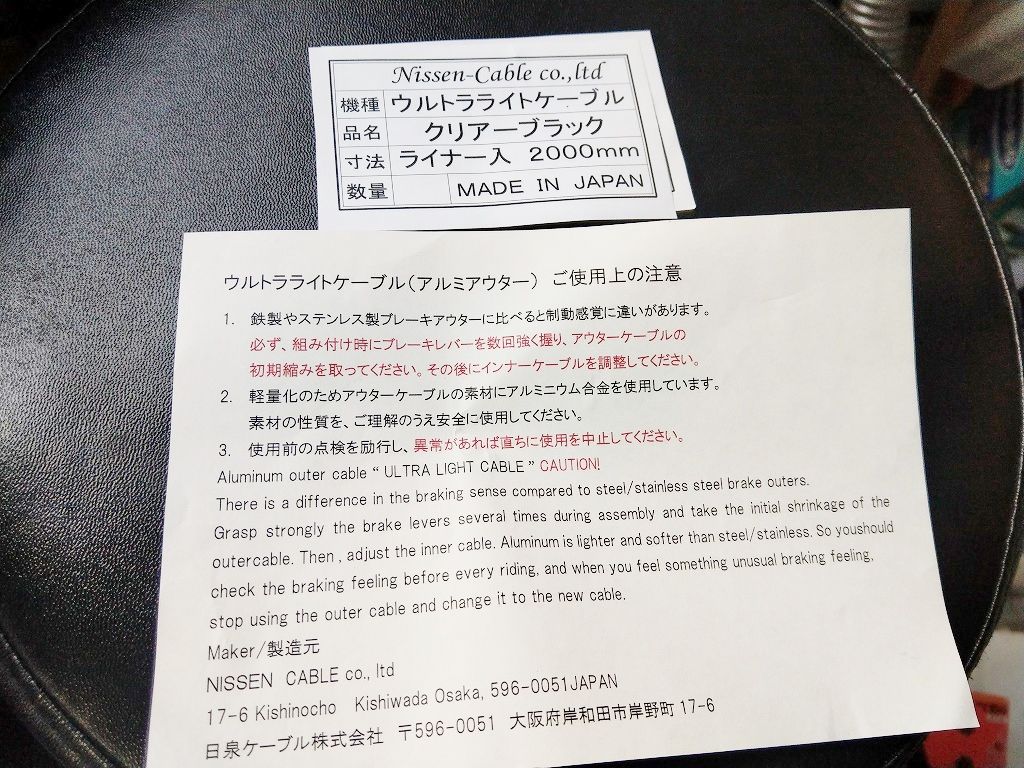 Nissen-Cable co.,ltd
機種 ウルトラライトケーブル
品名 クリアーブラック
寸法 ライナー入 2000mm
数量 MADE IN JAPAN
ウルトラライトケーブル(アルミアウター) ご使用上の注意
1. 鉄製やステンレス製ブレーキアウターに比べると制動感覚に違いがあります。
必ず、組み付け時にブレーキレバーを数回強く握り、アウターケーブルの
初期縮みを取ってください。その後にインナーケーブルを調整してください。
2. 軽量化のためアウターケーブルの素材にアルミニウム合金を使用しています。
素材の性質を、ご理解のうえ安全に使用してください。
3. 使用前の点検を励行し、異常があれば直ちに使用を中止してください。
Aluminum outer cable “ ULTRA LIGHT CABLE ” CAUTION!
There is a difference in the braking sense compared to steel/stainless steel brake outers.
Grasp strongly the brake levers several times during assembly and take the initial shrinkage of the
outercable. Then , adjust the inner cable. Aluminum is lighter and softer than steel/stainless. So youshould
check the braking feeling before every riding, and when you feel something unusual braking feeling,
stop using the outer cable and change it to the new cable.
Maker/製造元
NISSEN CABLE co., ltd
17-6 Kishinocho Kishiwada Osaka, 596-0051JAPAN
日泉ケーブル株式会社 〒596-0051 大阪府岸和田市岸野町17-6